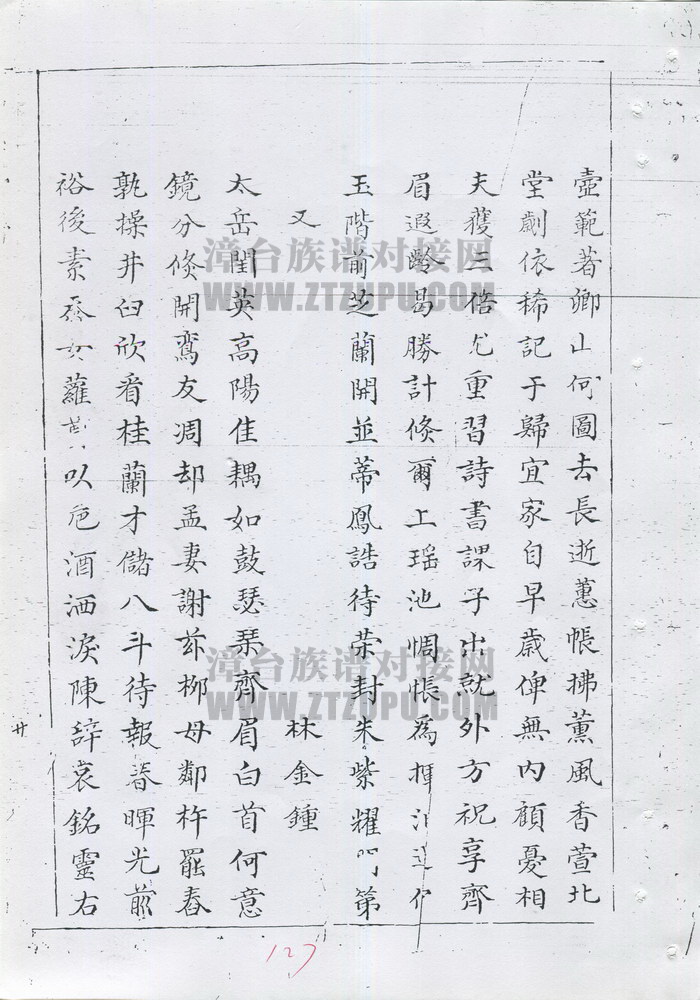 壺範著鄉山何圖去長逝蕙帳拂薰風香萱北
堂劇依稀記于歸宜家自早歲俾無內顧憂相
夫獲三倍尤重習詩書課子出就外方祝享齊
眉遐齡曷勝計倏爾上瑶池惆悵為揮
玉階前芝蘭開並蒂鳳誥待荣封朱紫耀門第
又
林金鍾
太岳閨英高陽佳耦如鼓瑟琹齊眉白首何意
鏡分倏開鸞友凋却孟妻謝茲栁母鄰杵罷舂
孰操井臼欣看桂蘭才儲八斗待報春暉光前
裕後素忝女蘿以卮酒洒淚陳辭哀銘靈右
廿
127
漳台族谱对接网
WWW.ZTZUPU.COM
漳台族谱对接网
WWW.ZTZUPU.COM